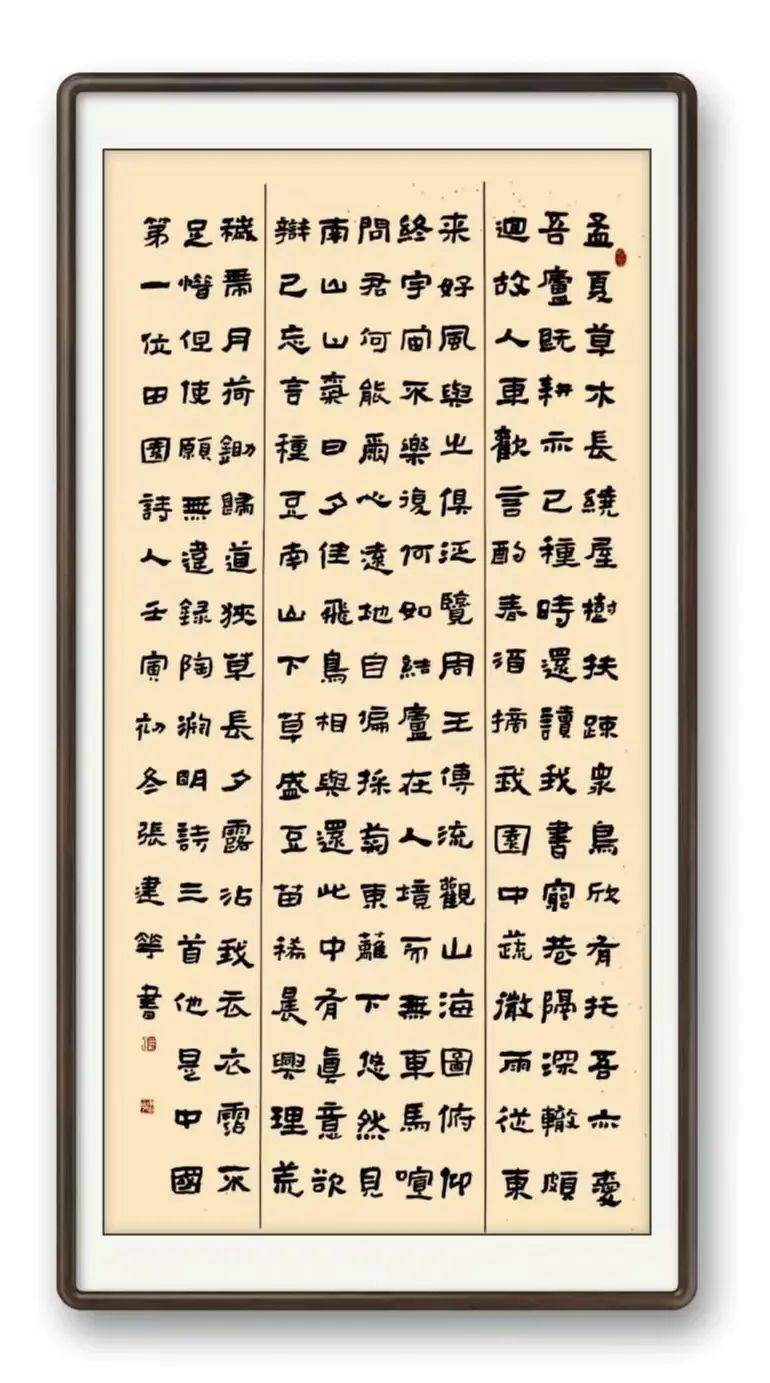 孟夏草木長繞屋樹扶疎眾鳥欣有托吾亦愛
吾廬既耕亦已種時還讀我書窮巷隔深轍頗
迴故人車歡言酌春酒摘我園中蔬微雨從東
来好風與之俱泛覽周王傳流觀山海圖俯仰
終宇宙不樂復何如結廬在人境而無車馬喧
問君何能爾心遠地自偏採菊東籬下悠然見
南山山氣日夕佳飛鳥相與還此中有真意欲
辯已忘言種豆南山下草盛豆苗稀晨興理荒
穢帶月荷鋤歸道狹草長夕露沾我衣衣霑不
足惜但使願無違錄陶淵明詩三首他是中國
第一位田園詩人壬寅初冬張建華書